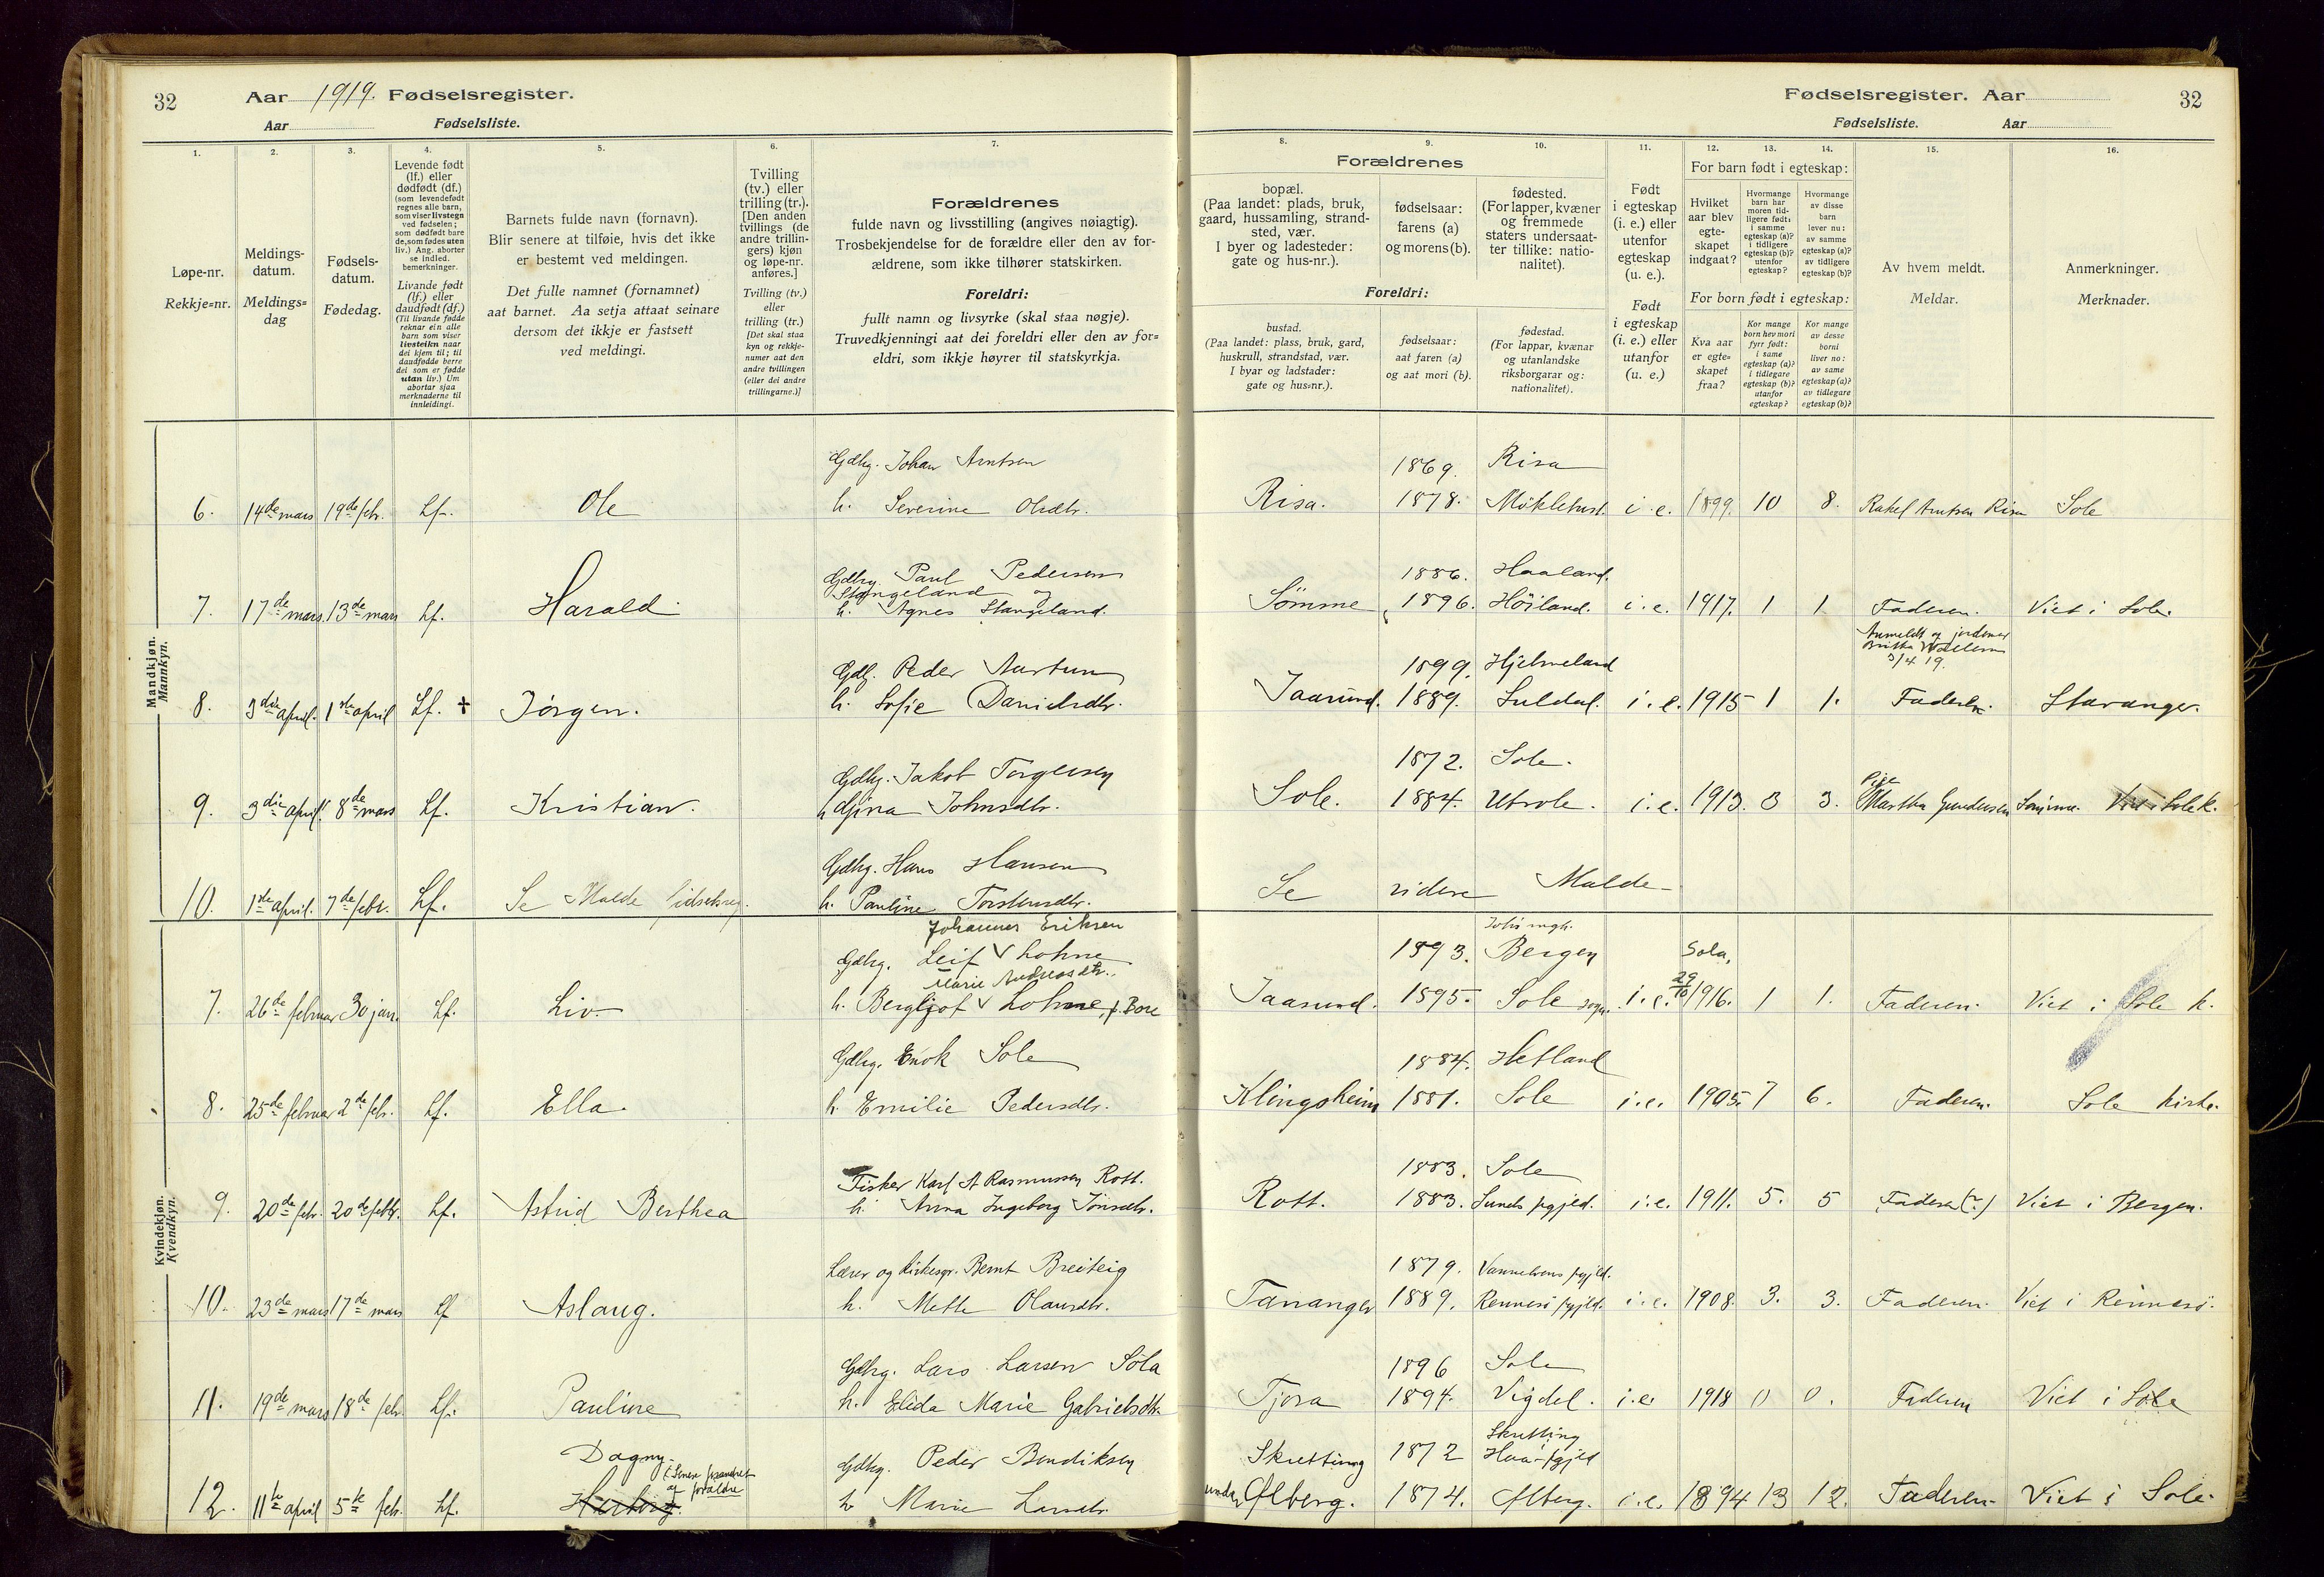 32 Aar 1919. Fødselsregister.
Aar Fødselsliste.
Fødselsregister. Aar 32
Fødselsliste. Aar
1. 2. 3. 4. 5. 6. 7. 8. 9. 10. 11. 12. 13. 14. 15. 16.
Løpe-nr.
Rekkje=nr.
Meldings-
datum.
Meldings=
dag
Fødsels-
datum.
Fødedag.
Levende født
(lf.) eller
dødfødt (df.)
(som levendefødt
regnes alle barn,
som viser livstegn
ved fødselen;
som dødfødt bare
de, som fødes uten
liv.) Ang. aborter
se indled.
bemerkninger.
Livande født
(lf.) eller
daudfødt (df.)
(Til livande fødde
reknar ein alle
barn som viser
livsteikn naar
dei kjem til; til
daudfødde berre
dei som er fødde
utan liv.) Um
abortar sjaa
merknaderne til
innleidingi.
Barnets fulde navn (fornavn).
Blir senere at tilføie, hvis det ikke
er bestemt ved meldingen.
Det fulle namnet (fornamnet)
aat barnet. Aa setja attaat seinare
dersom det ikkje er fastsett
ved meldingi.
Tvilling
(tv.) eller
trilling (tr.).
[Den anden
tvillings (de
andre trillin-
gers) kjøn
og løpe-nr.
anføres.]
Tvilling (tv.)
eller
trilling (tr.)
[Det skal staa
kyn og rekkje-
numer aat den
andre tvillingen
(eller dei andre
trillingarne.)]
Forældrenes
fulde navn og livsstilling (angives nøiagtig).
Trosbekjendelse for de forældre eller den av for-
ældrene, som ikke tilhører statskirken.
Foreldri:
fullt namn og livsyrke (skal staa nøgje).
Truvedkjenningi aat dei foreldri eller den av for=
eldri, som ikkje høyrer til statskyrkja.
Forældrenes
bopæl.
(Paa landet: plads, bruk,
gaard, hussamling, strand-
sted, vær.
I byer og ladesteder:
gate og hus-nr.).
fødselsaar:
farens (a)
og morens (b).
fødested.
(For lapper, kvæner
og fremmede
staters undersaat-
ter tillike: natio-
nalitet).
Foreldri:
bustad.
(Paa landet: plass, bruk, gard,
huskrull, strandstad, vær.
I byar og ladstader:
gate og hus=nr.).
fødselsaar:
aat faren (a)
og aat mori (b).
fødestad.
(For lappar, kvænar
og utanlandske
riksborgarar og:
nationalitet).
Født
i egteskap
(i. e.) eller
utenfor
egteskap
(u. e.).
Født
i egteskap
(i. e.) eller
utanfor
(u. e.)
For barn født i egteskap:
Hvilket
aar blev
egte-
skapet
indgaat?
Hvormange
barn har
moren tid-
ligere født:
i samme
egteskap (a)?
i tidligere
egteskap (b)?
utenfor
egteskap?
Hvormange
av disse
barn
lever nu:
av samme
egteskap (a)?
av tidligere
egteskap (b)?
For born født i egteskap:
Kva aar
er egte=
skapet
fraa?
Kor mange
born hev mori
fyrr født:
i same
egteskap (a)?
i tidlegare
egteskap (b)?
utanfor
egteskap?
Kor mange
av desse
borni
liver no:
av same
egteskap (a)?
av tidlegare
egteskap (b)?
Av hvem meldt.
Meldar.
Anmerkninger.
Merknader.
Mandkjøn.
Mannkyn.
Gdbg. Johan Arntsen 1869. Risa
6. 14de mars 19de febr. Lf. Ole h. Severine Olsdtr. Risa. 1878. Möklebust. i. e. 1899. 10 8. Rakel Arntsen Risa Sole
Gdbg. Paul Pedersen 1886. Haaland.
Stangeland og
7. 17de mars. 13de mars Lf. Harald h. Agnes Stangeland. Sömme 1896. Höiland. i. e. 1917. 1 1. Faderen. Viet i Sole.
Anmeldt af jordemor
3/4 19.
Gdbg. Peder Aartun 1899. Hjelmeland
8. 3die april. 1ste april Lf. † Jörgen. h. Sofie Danielsdtr. Jaasund. 1889. Suldal. i. e. 1915 1 1. Faderen. Stavanger.
Gdbg. Jakob Torgersen 1872. Sole.
9. 3die april 8de mars Lf. Kristian. h. Gjina Johnsdtr. Sole. 1884. Utsole. i. e. 1913. 3 3. Pige Martha Gundersen Sömme. Viet i Sole k.
Gdbg. Hans Hansen
10. 1ste april. 7de febr. Lf. Se Malde fødselsreg. h. Pauline Torstensdtr. Se videre Malde
Kvindekjøn.
Kvendkyn.
Johannes Eriksen
Gdbg. Leif Lohne 1893. Bergen Sola,
Marie Andreasdtr.
7. 26de februar 30 jan. Lf. Liv. h. Bergljot Lohne, f. Bore Jaasund. 1895. Sole sogn. i. e. 29/10 1916. 1 1. Faderen. Viet i Sole k.
Gdbg. Enok Sole 1884. Hetland
8. 25de februar 2de febr. Lf. Ella. h. Emilie Pedersdtr. Klingsheim 1881. Sole i. e. 1905. 7 6. Faderen. Sole kirke.
Fisker Karl A Rasmussen Rott. 1883. Sole
9. 20de febr. 20de febr. Lf. Astrid Berthea h. Anna Ingeborg Jönsdtr. Rott. 1883. Sunds pgjeld. i. e. 1911. 5. 5 Faderen (?) Viet i Bergen.
Lærer og kirkesgr. Bernt Breiteig 1879. Vannelvens pgjeld.
10. 23de mars 17de mars Lf Aslaug. h. Mette Olausdtr. Tananger 1889. Rennesö pgjeld. i. e. 1908. 3. 3. Faderen. Viet i Rennesö.
Gdbg. Lars Larsen Sola 1896 Sole
11. 19de mars 18de febr. Lf. Pauline h. Elida Marie Gabrielsdtr. Tjora 1894. Vigdel. i. e. 1918 0 0. Faderen Viet i Sole
Dagny. Gdbg. Peder Bendiksen Skretting 1872 Skretting Haa pgjeld
(Senere forandret
af foreldre
12. 11te april 5te febr. Lf. h Marie Larsdtr. under Ølberg. 1874. Ølberg. i. e. 1894 13 12. Faderen. Viet i Sole.